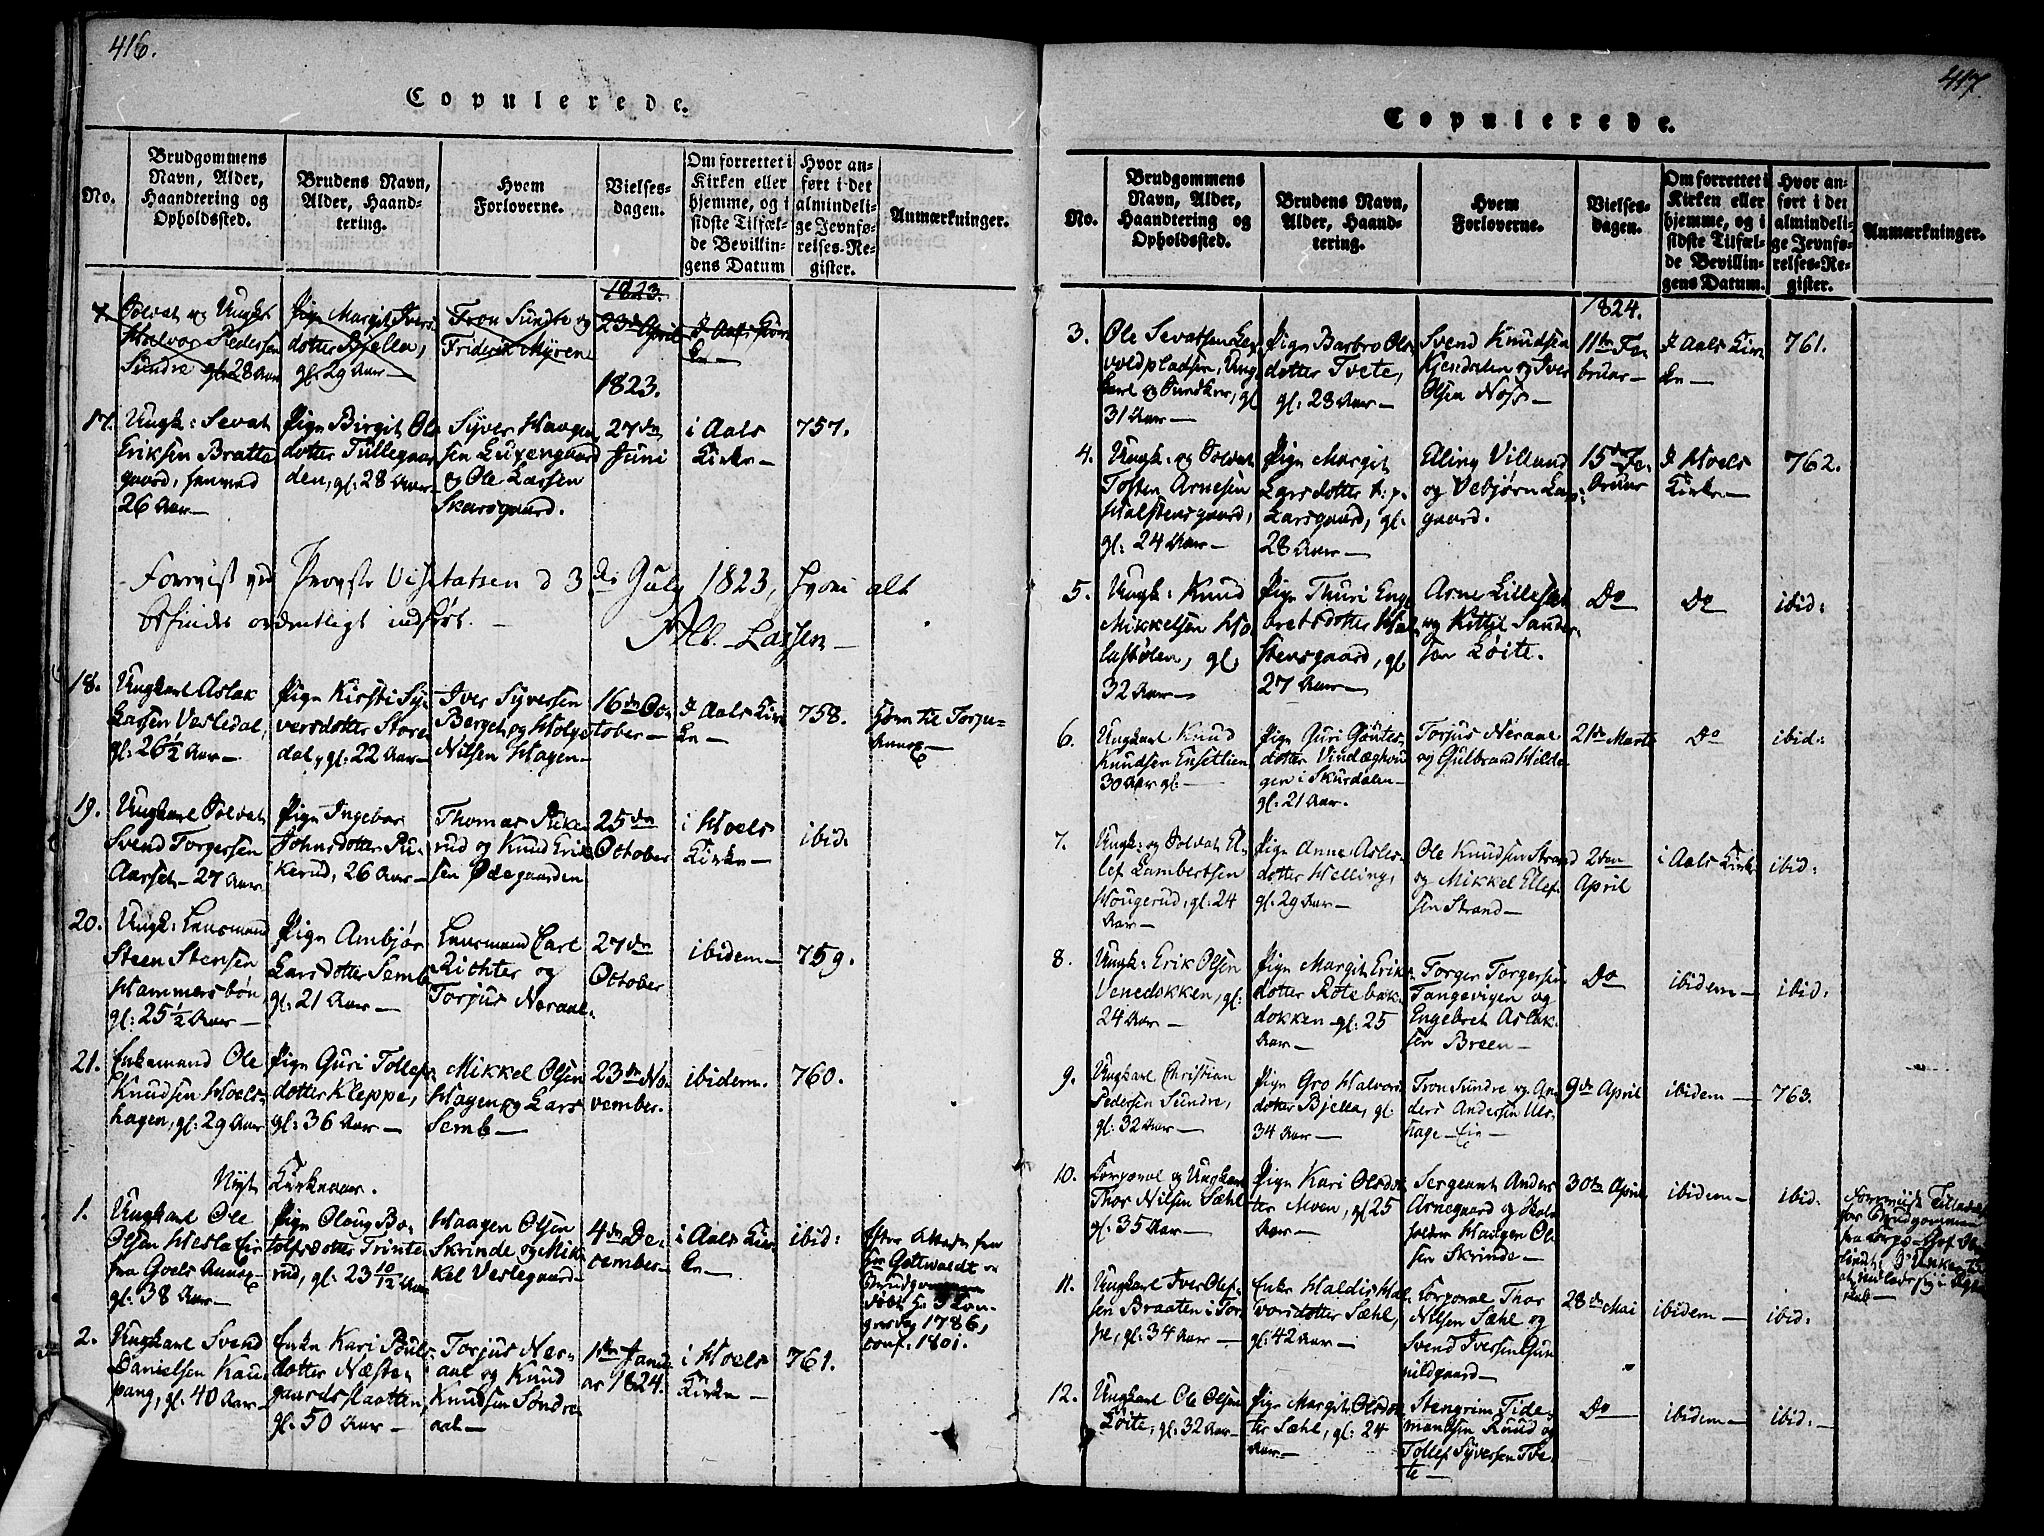 416.
Copulerede.
No.
Brudgommens
Navn, Alder,
Haandtering og
Opholdssted.
Brudens Navn,
Alder, Haand-
tering.
Hvem
Forloverne.
Vielses-
dagen.
Om forrettet i
Kirken eller
hjemme, og i
sidste Tilfæl-
de Bevillin-
gens Datum
Hvor an-
ført i det
almindeli-
ge Jevnfø-
relses-Re-
gister.
Anmærkninger.
Solvat og Ungkl
Halvor Pedersen
Sundre gl. 28 Aar
Pige Margit Ivers
dotter Bjella,
gl. 29 Aar—
Tron Sundre og
Friderik Myren
1823.
23de April
I Aals Kir-
ke—
1823.
17.
Ungk: Sevat
Eriksen Bratte
gaard,
26 Aar—
Pige Birgit Ols
dotter Tullegaar
den, gl. 28 Aar—
Syver Haagen
sen Luxengaard
og Ole Larsen
Skarsgaard.
27de
Juni
i Aals
Kirke—
757.
Foreviist ved Provste Visitatsen d 3de July 1823, hvori alt
befindes ordentligt indført.—
Alb. Lassen—
18.
Ungkarl Aslak
Larsen Vesledal,
gl: 26½ Aar—
Pige Kirsti Sy-
versdotter Store
dal, gl: 22 Aar—
Iver Syversen
Berget og Holge
Nilsen Hagen—
16de Oc-
tober—
I Aals Kir
ke—
758.
hører til Torpe-
Annex—
19.
Ungkarl Solvat
Svend Torgersen
Aarset— 27 Aar
Pige Ingebor
Johnsdotter Ru-
kerud, 26 Aar—
Thomas Ruke
rud og Knud Erik
sen Ødegaarden
25de
October
i Hoels
Kirke—
ibid.
20.
Ungk: Lensmand
Steen Stensen
Hammersbøn,
gl: 25½ Aar—
Pige Ambjør
Larsdotter Semb
gl: 21 Aar—
Lensmand Carl
Richter og
Torjus Neraal.
27de
October
ibidem—
759.
21.
Enkemand Ole
Knudsen Hoels-
hagen, gl: 29 Aar
Pige Guri Tollefs
dotter Kleppe,
gl: 36 Aar—
Mikkel Olsen
Hagen og Lars
Semb—
23de No-
vember.
ibidem.
760.
Nyt Kirkeaar.
1.
Ungkarl Ole
Olsen Hesla Eie
fra Goels Annex
gl: 38 Aar—
Pige Oloug Bo-
tolfsdotter Trinte
rud, gl: 23 10/12 Aar
Haagen Olsen
Skrinde og Mik-
kel Veslegaard—
4de De-
cember—
i Aals Kir-
ke—
ibid:
Efter
Gottwaldt er
1786,
conf. 1801.
2.
Ungkarl Svend
Danielsen Kau-
pang, gl. 40 Aar—
Enke Kari Pouls-
dotter Næste-
gaards
gl: 50 Aar—
Torjus Ner-
aal og Knud
Knudsen Søndre
aal—
1ste Janu
ar 1824.
i Hoels
Kirke—
761.
417.
Copulerede.
No.
Brudgommens
Navn, Alder,
Haandtering og
Opholdssted.
Brudens Navn,
Alder, Haand-
tering.
Hvem
Forloverne.
Vielses-
dagen.
Om forrettet i
Kirken eller
hjemme, og i
sidste Tilfæl-
de Bevillin-
gens Datum.
Hvor an-
ført i det
almindeli-
ge Jevnfø-
relses-Re-
gister.
Anmærkninger.
1824.
3.
Ole Sevatsen Lex
voldpladsen, Ung
karl og Snedker, gl
31 Aar—
Pige Barbro Ols
dotter Tvete,
gl: 28 Aar—
Svend Knudsen
Kjendalen og Iver
Olsen Noss—
11te Fe-
bruar—
I Aals Kir
ke—
761.
4.
Ungk: og Solvat
Tosten Arnesen
Halstensgaard,
gl: 24 Aar—
Pige Margit
Larsdotter
Larsgaard, gl:
28 Aar—
Eling Villand
og Vebjørn Lars
gaard.
15de Fe-
bruar
I Hoels
Kirke—
762.
5.
Ungk: Knud
Mikkelsen Ho-
lastølen, gl:
32 Aar—
Pige Thuri Enge
bretsdotter Hal
stensgaard, gl
27 Aar—
Arne Lillesæt
og Kittil Sander-
sen Løite.
Do
Do
ibid:
6.
Ungkarl Knud
Knudsen Ensetlien
30 Aar gl:—
Pige Guri Gøntes
dotter Vindæghou
gen i Skurdalen—
gl: 21 Aar.
Torjus Neraal
og Gulbrand Helde
21de Marts
Do
ibid:
7.
Ungk: og Solvat E-
lef Lambertsen
Hougerud, gl: 24
Aar—
Pige Anne Asles-
dotter Helling,
gl: 29 Aar—
Ole Knudsen Strand
og Mikkel Ellef-
sen Strand—
2den
April
i Aals Kirke
ibid:
8.
Ungk: Erik Olsen
Venedokken, gl:
24 Aar—
Pige Margit Erik-
dotter Rotebak-
dokken gl: 25
Aar—
Torger Torgersen
Tangevigen og
Engebret Aslak-
sen Breen—
Do
ibidem—
ibid:
9.
Ungkarl Christian
Pedersen Sundre,
gl: 32 Aar—
Pige Gro Halvors
dotter Bjella, gl:
34 Aar—
Tron Sundre og An-
ders Andersen Uls-
hage-Eie—
9de April
ibidem—
763.
10.
Corporal og Ungkarl
Thor Nilsen Sæhl
gl: 35 Aar—
Pige Kari Olsdot
ter Moen, gl 25
Aar—
Sergeant Anders
Arnegaard og Skol
holder Haagen Ol-
sen Skrinde—
30te April
ibidem—
ibid.
Foreviist Tilladelse
for Brudgommen
11.
Ungkarl Iver Olef-
sen Braaten i Tor-
pe, gl: 34 Aar—
Enke Haldis Hal-
vorsdotter Sæhl,
gl: 42 Aar—
Corporal Thor
Nilsen Sæhl og
Svend Iversen Gun
nildgaard—
28de Mai
ibidem—
ibid:
12.
Ungkarl Ole Olsen
Løite, gl: 32 Aar—
Pige Margit Olsdot
ter Sæhl, gl: 24
Aar—
Stengrim Tide-
mandsen Ruud og
Tollef Syversen Tve-
te—
Do
ibidem—
ibid: